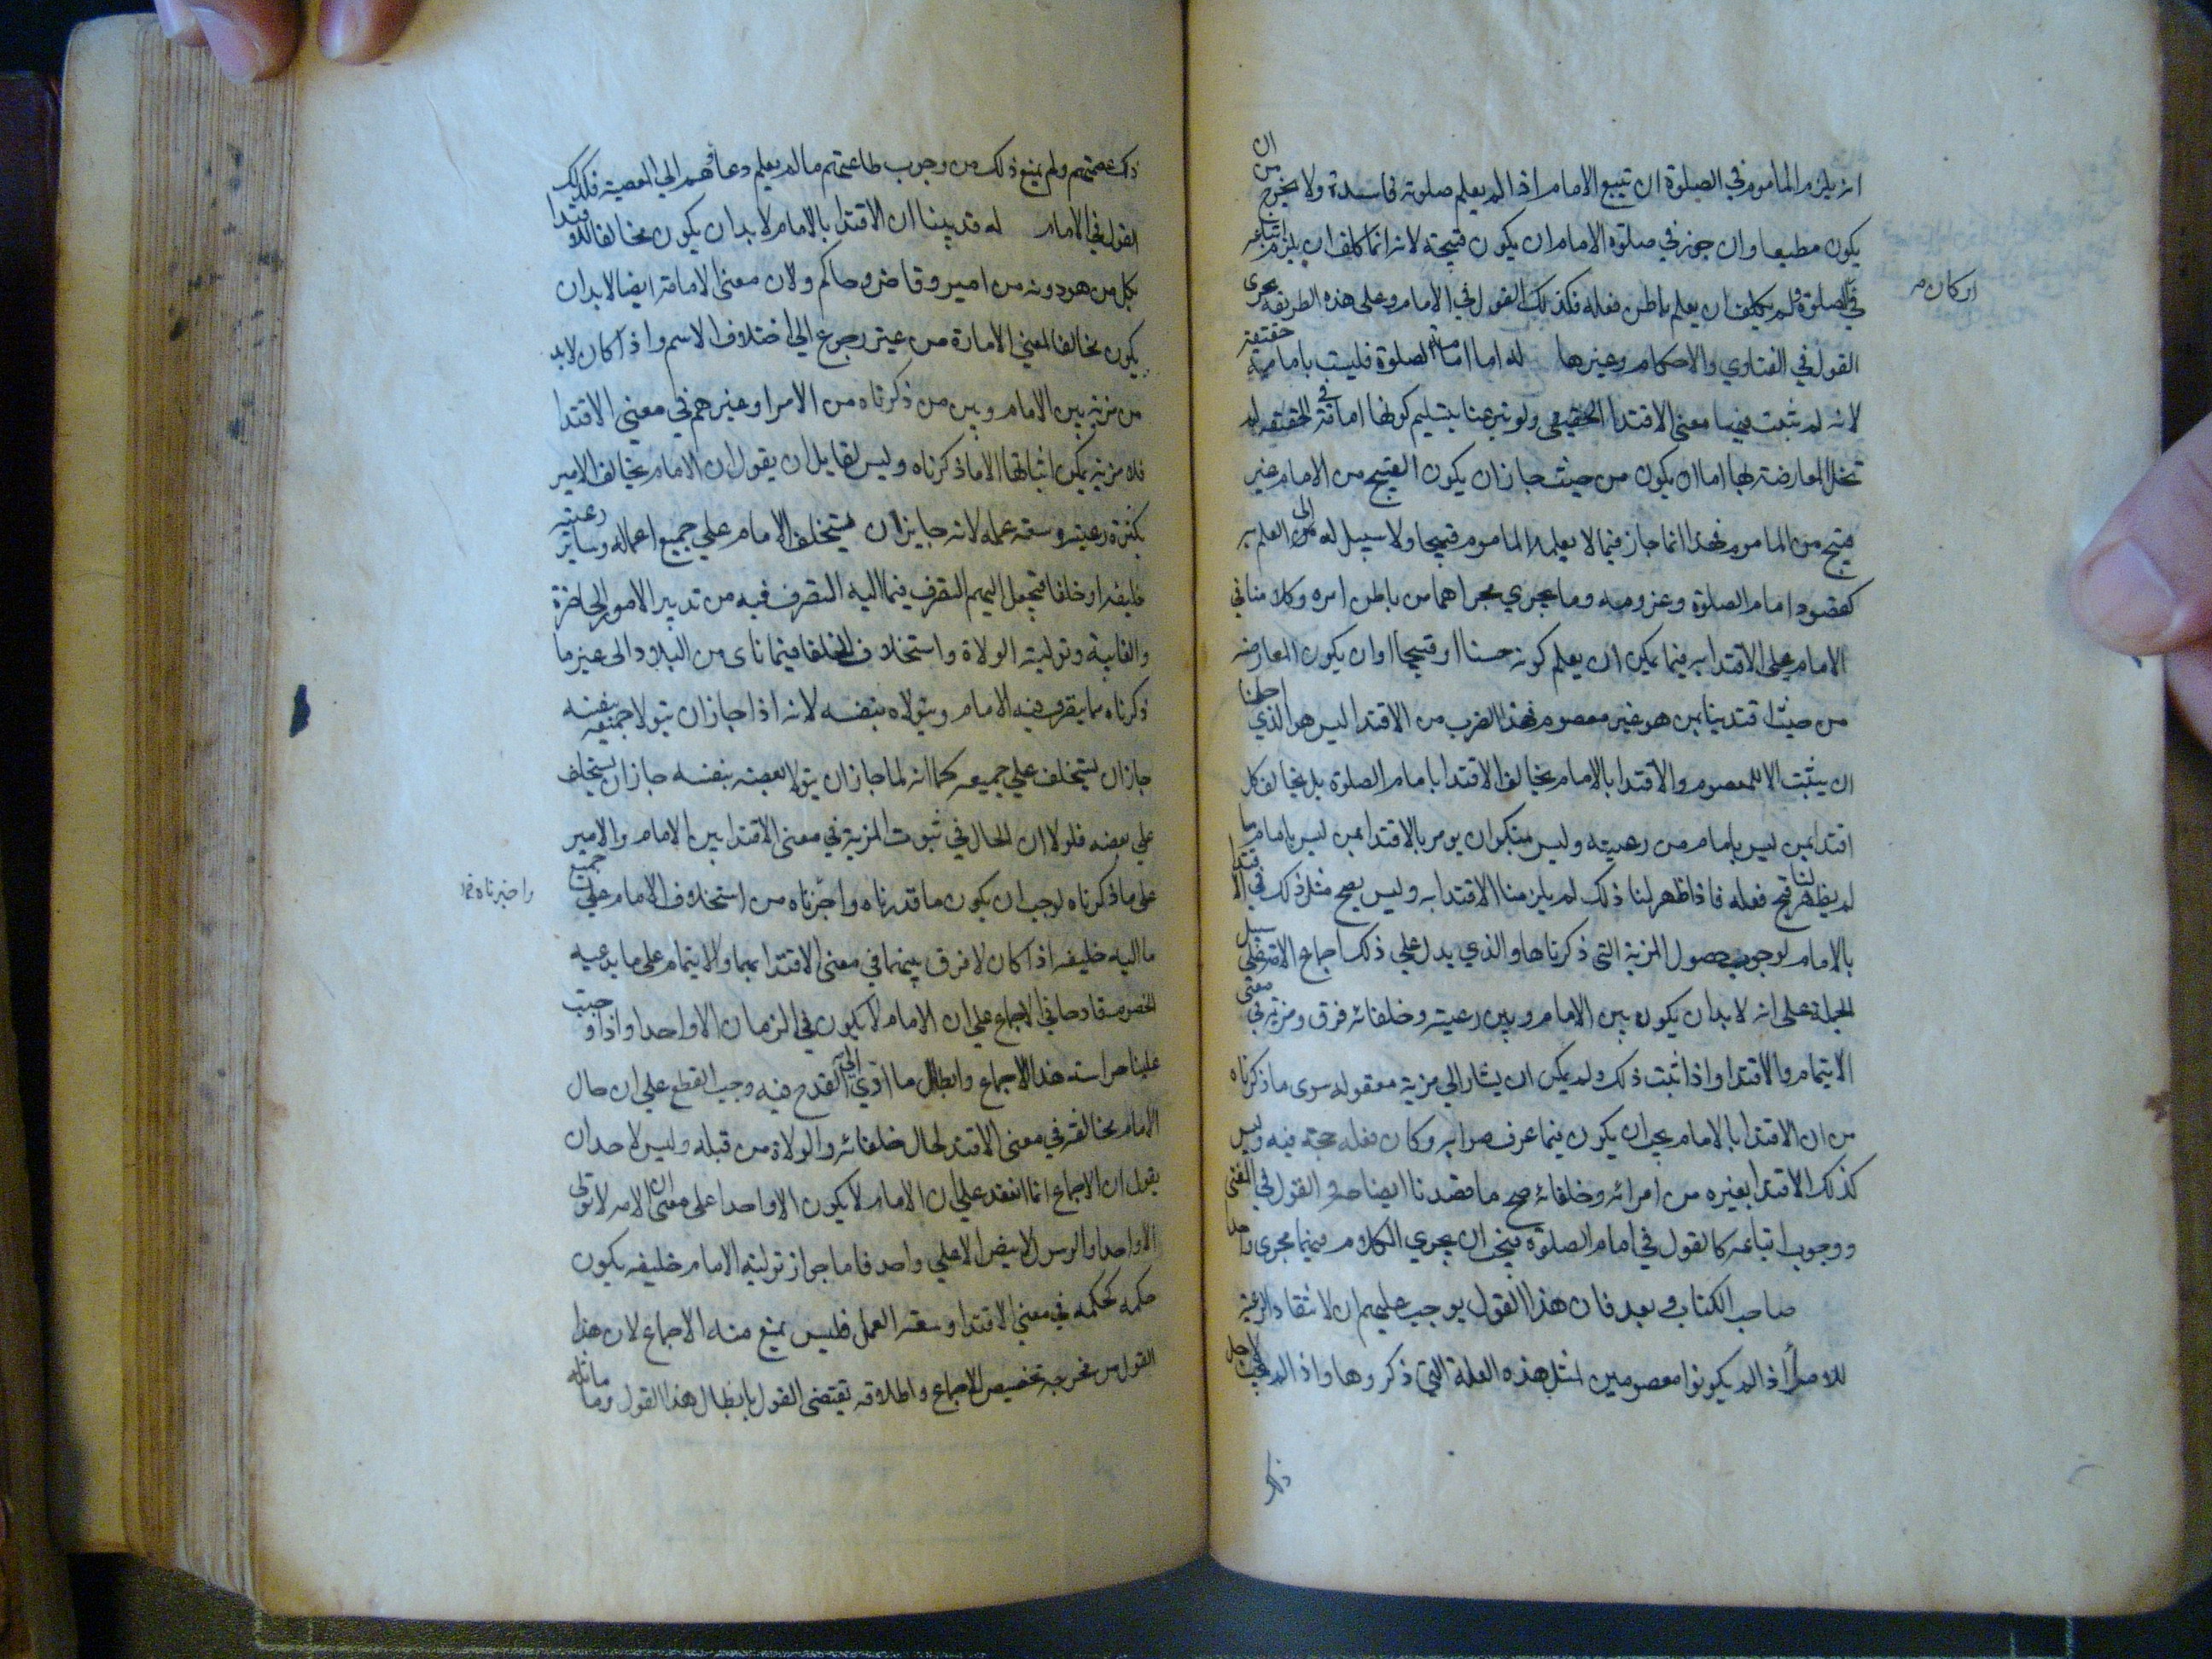 انه يلزم المأموم في الصلوة ان يتبع الامام اذا لم يعلم صلوته فاسدة ولا يخرج من ان
يكون مطيعا وان جوز في صلوة الامام ان يكون قبيحة لانه انما كلف ان يلزم اتباعه
في الصلوة ولم يكلف ان يعلم باطن فعله فكذلك القول في الامام وعلى هذه الطريقة يجري
او كان م
القول في الفتاوي والاحكام وغيرها له اما امامة الصلوة فليست بامامة حقيقة
لانه لم تثبت فيها معنى الاقتدا الحقيقي ولو تبرعنا بتسليم كونها امامة في الحقيقة لم
تخل المعارضة بها اما ان يكون من حيث جاز ان يكون القبيح من الامام غير
قبيح من الماموم فهذا انما جاز فيما لا يعلمه الماموم قبيحا ولا سبيل له الى العلم به
كقصود امام الصلوة وعزومه وما يجري مجراهما من باطن امره وكلامنا في
الامام على الاقتدا به فيما يمكن ان يعلم كونه حسنا او قبيحا او ان يكون المعارضه
من حيث اقتدينا بمن هو غير معصوم فهذا الضرب من الاقتدا ليس هو الذي احلنا
ان يثبت الا للمعصوم والاقتدا بالامام يخالف الاقتدا بامام الصلوة بل يخالف كل
اقتدا بمن ليس بامام من رعيته وليس بمنكر ان يومر بالاقتدا بمن ليس بامام ما
لم يظهر لنا قبح فعله فاذا ظهر لنا ذلك لم يلزمنا الاقتدا به وليس يصح مثل ذلك في الاقتدا
بالامام لوجوب حصول المزية التي ذكرناها والذي يدل على ذلك اجماع الامة على سبيل
الجملة على انه لا بد ان يكون بين الامام وبين رعيته وخلفائه فرق ومزية في معنى
الايتمام والاقتدا واذا ثبت ذلك ولم يمكن ان يشار الي مزية معقوله سوى ما ذكرناه
من ان الاقتدا بالامام يجب ان يكون فيما عرف صوابه وكان فعله حجة فيه وليس
كذلك الاقتدا بغيره من امرائه وخلفائه صح ما قصدنا ايضاحه والقول في المفتى
ووجوب اتباعه كالقول في امام الصلوة فيجب ان يجري الكلام فيهما مجرى واحدا
صاحب الكتاب وبعد فان هذا القول يوجب عليهم ان لا تنقاد الرعية
للامراء اذا لم يكونوا معصومين لمثل هذه العلة التي ذكروها واذا لم يجب لاجل
ذلك
ذلك عصمتهم ولم يمنع ذلك من وجوب طاعتهم ما لم يعلم دعاؤهم الي المعصية فكذلك
القول في الامام له قد بينا ان الاقتدا بالامام لا بد ان يكون مخالفا للاقتدا
بكل من هو دونه من امير وقاض وحاكم ولان معنى الامامة ايضا لا بد ان
يكون مخالفا لمعنى الامارة من غير رجوع الي اختلاف الاسم واذا كان لا بد
من مزية بين الامام وبين من ذكرناه من الامرا وغيرهم في معنى الاقتدا
فلا مزية يمكن اثباتها الا ما ذكرناه وليس لقايل ان يقول ان الامام يخالف الامير
بكثرة رعيته وسعة عمله لانه جايز ان يستخلف الامام علي جميع اعماله وساير رعيته
خليفه او خلفا فيجعل اليهم التصرف فيما اليه التصرف فيه من تدبير الامور الحاضرة
والغايبة وتولية الولاة واستخلاف الخلفا فيما ناى من البلاد الى غير ما
ذكرناه مما يتصرف فيه الامام ويتولاه بنفسه لانه اذا جاز ان يتولا جميعه بنفسه
جاز ان يستخلف علي جميعه كما انه لما جاز ان يتولا بعضه بنفسه جاز ان يستخلف
علي بعضه فلولا ان الحال في ثبوت المزية في معنى الاقتدا بين الامام والامير
على ما ذكرناه لوجب ان يكون ما قدرناه واجزناه من استخلاف الامام علي جميع
ما اليه خليفه اذا كان لا فرق بينهما في معنى الاقتدا بهما والايتمام على ما يدعيه
الخصوم قادحا في الاجماع علي ان الامام لا يكون في الزمان الا واحدا واذا وجبت
علينا حراسة هذا الاجماع وابطال ما ادي الى القدح فيه وجب القطع علي ان حال
الامام مخالفة في معنى الاقتدا لحال خلفائه والولاة من قبله وليس لاحد ان
يقول ان الاجماع انما انعقد علي ان الامام لا يكون الا واحدا على معنى ان الامة لا تولى
الا واحدا والرسول لا ينص الا علي واحد فاما جواز تولية الامام خليفه يكون
حكمه كحكمه في معنى الاقتدا وسعة العمل فليس يمنع منه الاجماع لان هذا
القول من مخرجه تخصيص للاجماع واطلاقه يقتضى القول بابطال هذا القول وما ماثله